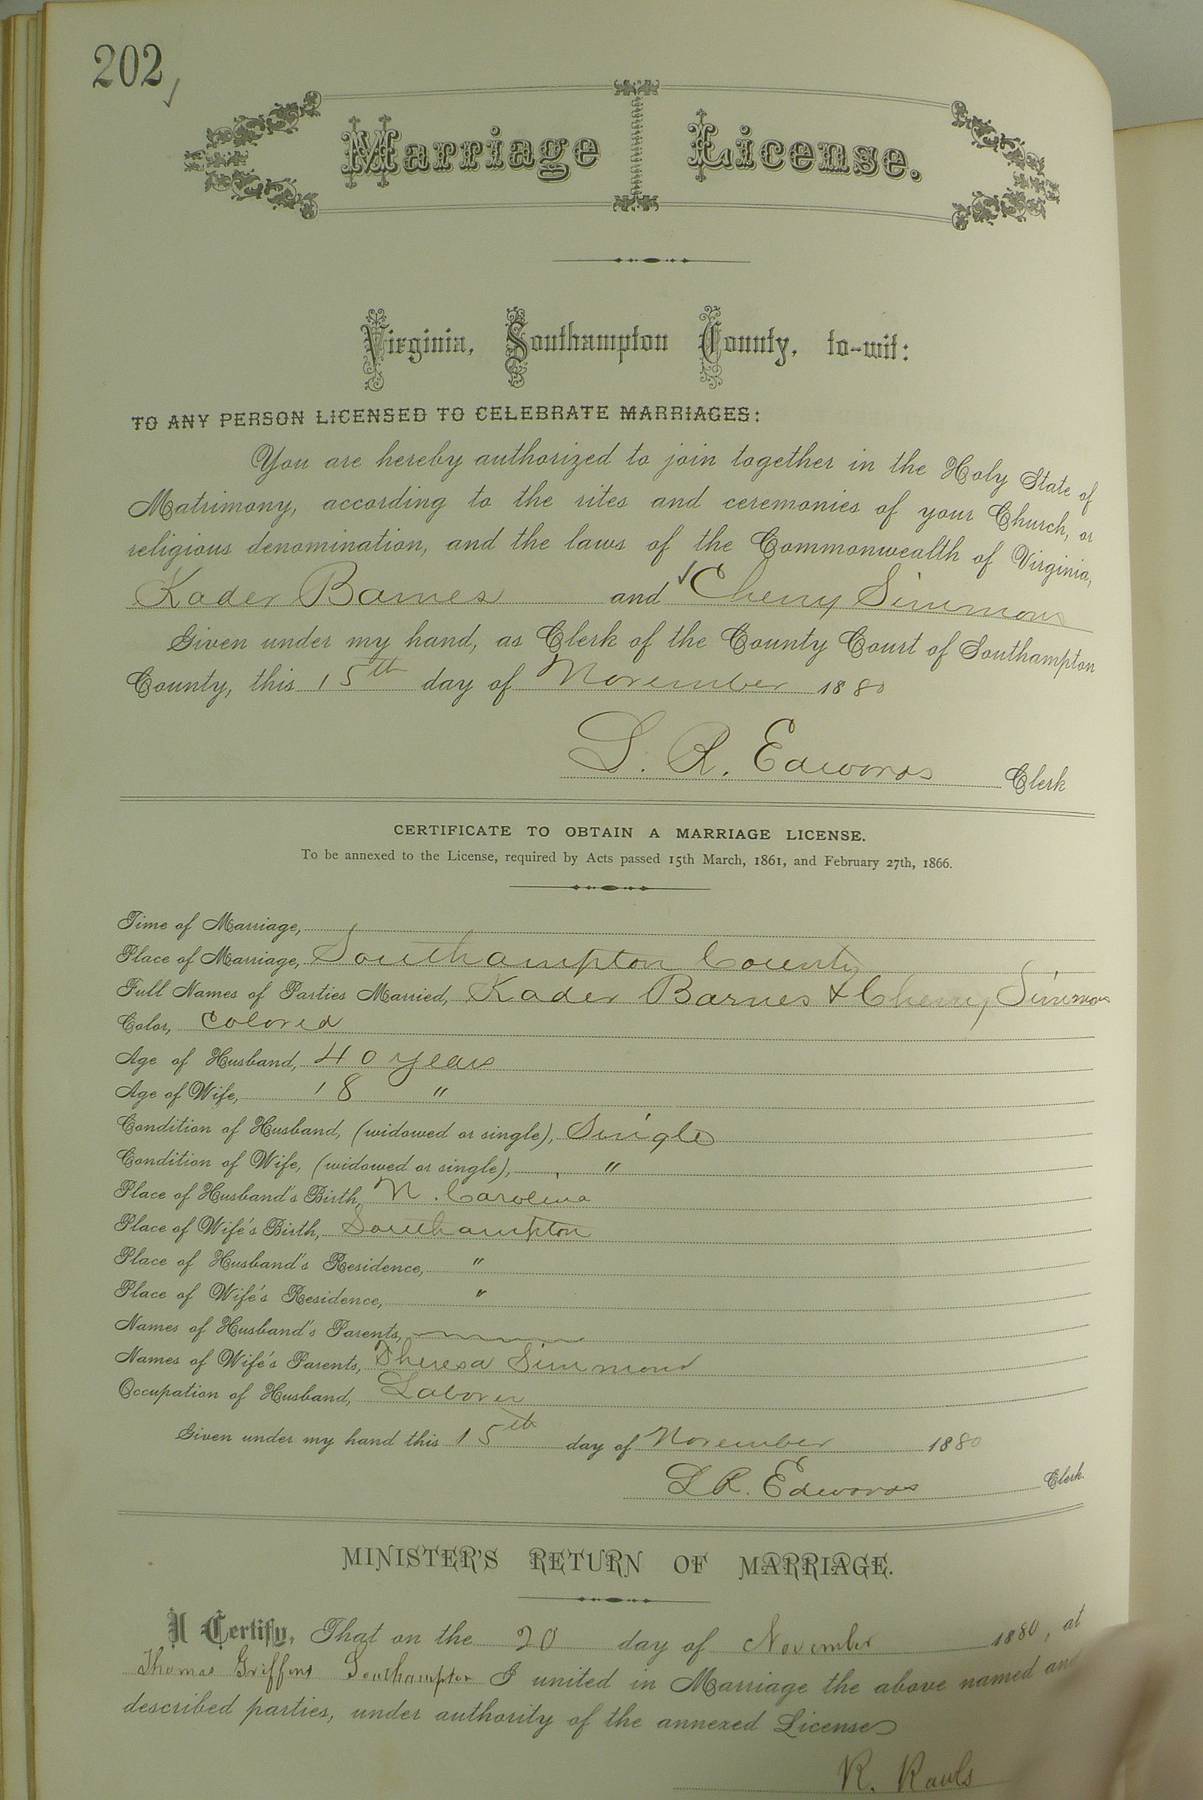 202
Marriage License.
Virginia, Southampton County, to-wit:
TO ANY PERSON LICENSED TO CELEBRATE MARRIAGES:
You are hereby authorized to join together in the Holy State of
Matrimony, according to the rites and ceremonies of your Church, or
religious denomination, and the laws of the Commonwealth of Virginia,
Kader Barnes and Cherry Simmons
Given under my hand, as Clerk of the County Court of Southampton
County, this 15th day of November 1880
L. R. Edwards Clerk
CERTIFICATE TO OBTAIN A MARRIAGE LICENSE.
To be annexed to the License, required by Acts passed 15th March, 1861, and February 27th, 1866.
Time of Marriage,
Place of Marriage, Southampton County
Full Names of Parties Married, Kader Barnes & Cherry Simmons
Color, Colored
Age of Husband, 40 years
Age of Wife, 18 "
Condition of Husband, (widowed or single), Single
Condition of Wife, (widowed or single), "
Place of Husband's Birth, N. Carolina
Place of Wife's Birth, Southampton
Place of Husband's Residence, "
Place of Wife's Residence, "
Names of Husband's Parents,
Names of Wife's Parents, Theresa Simmons
Occupation of Husband, Laborer
Given under my hand this 15th day of November 1880
L R. Edwards Clerk.
MINISTER'S RETURN OF MARRIAGE.
I Certify, That on the 20 day of November 1880, at
Thomas Griffins Southampton I united in Marriage the above named and
described parties, under authority of the annexed License
R. Rawls